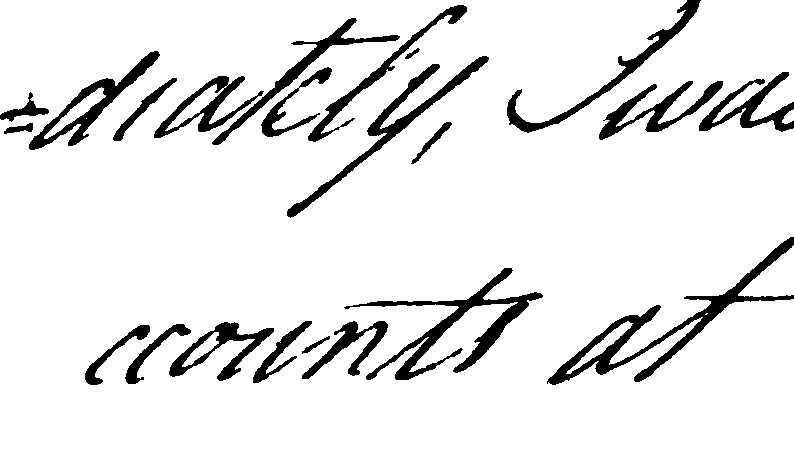 =diately, I was
ccounts at